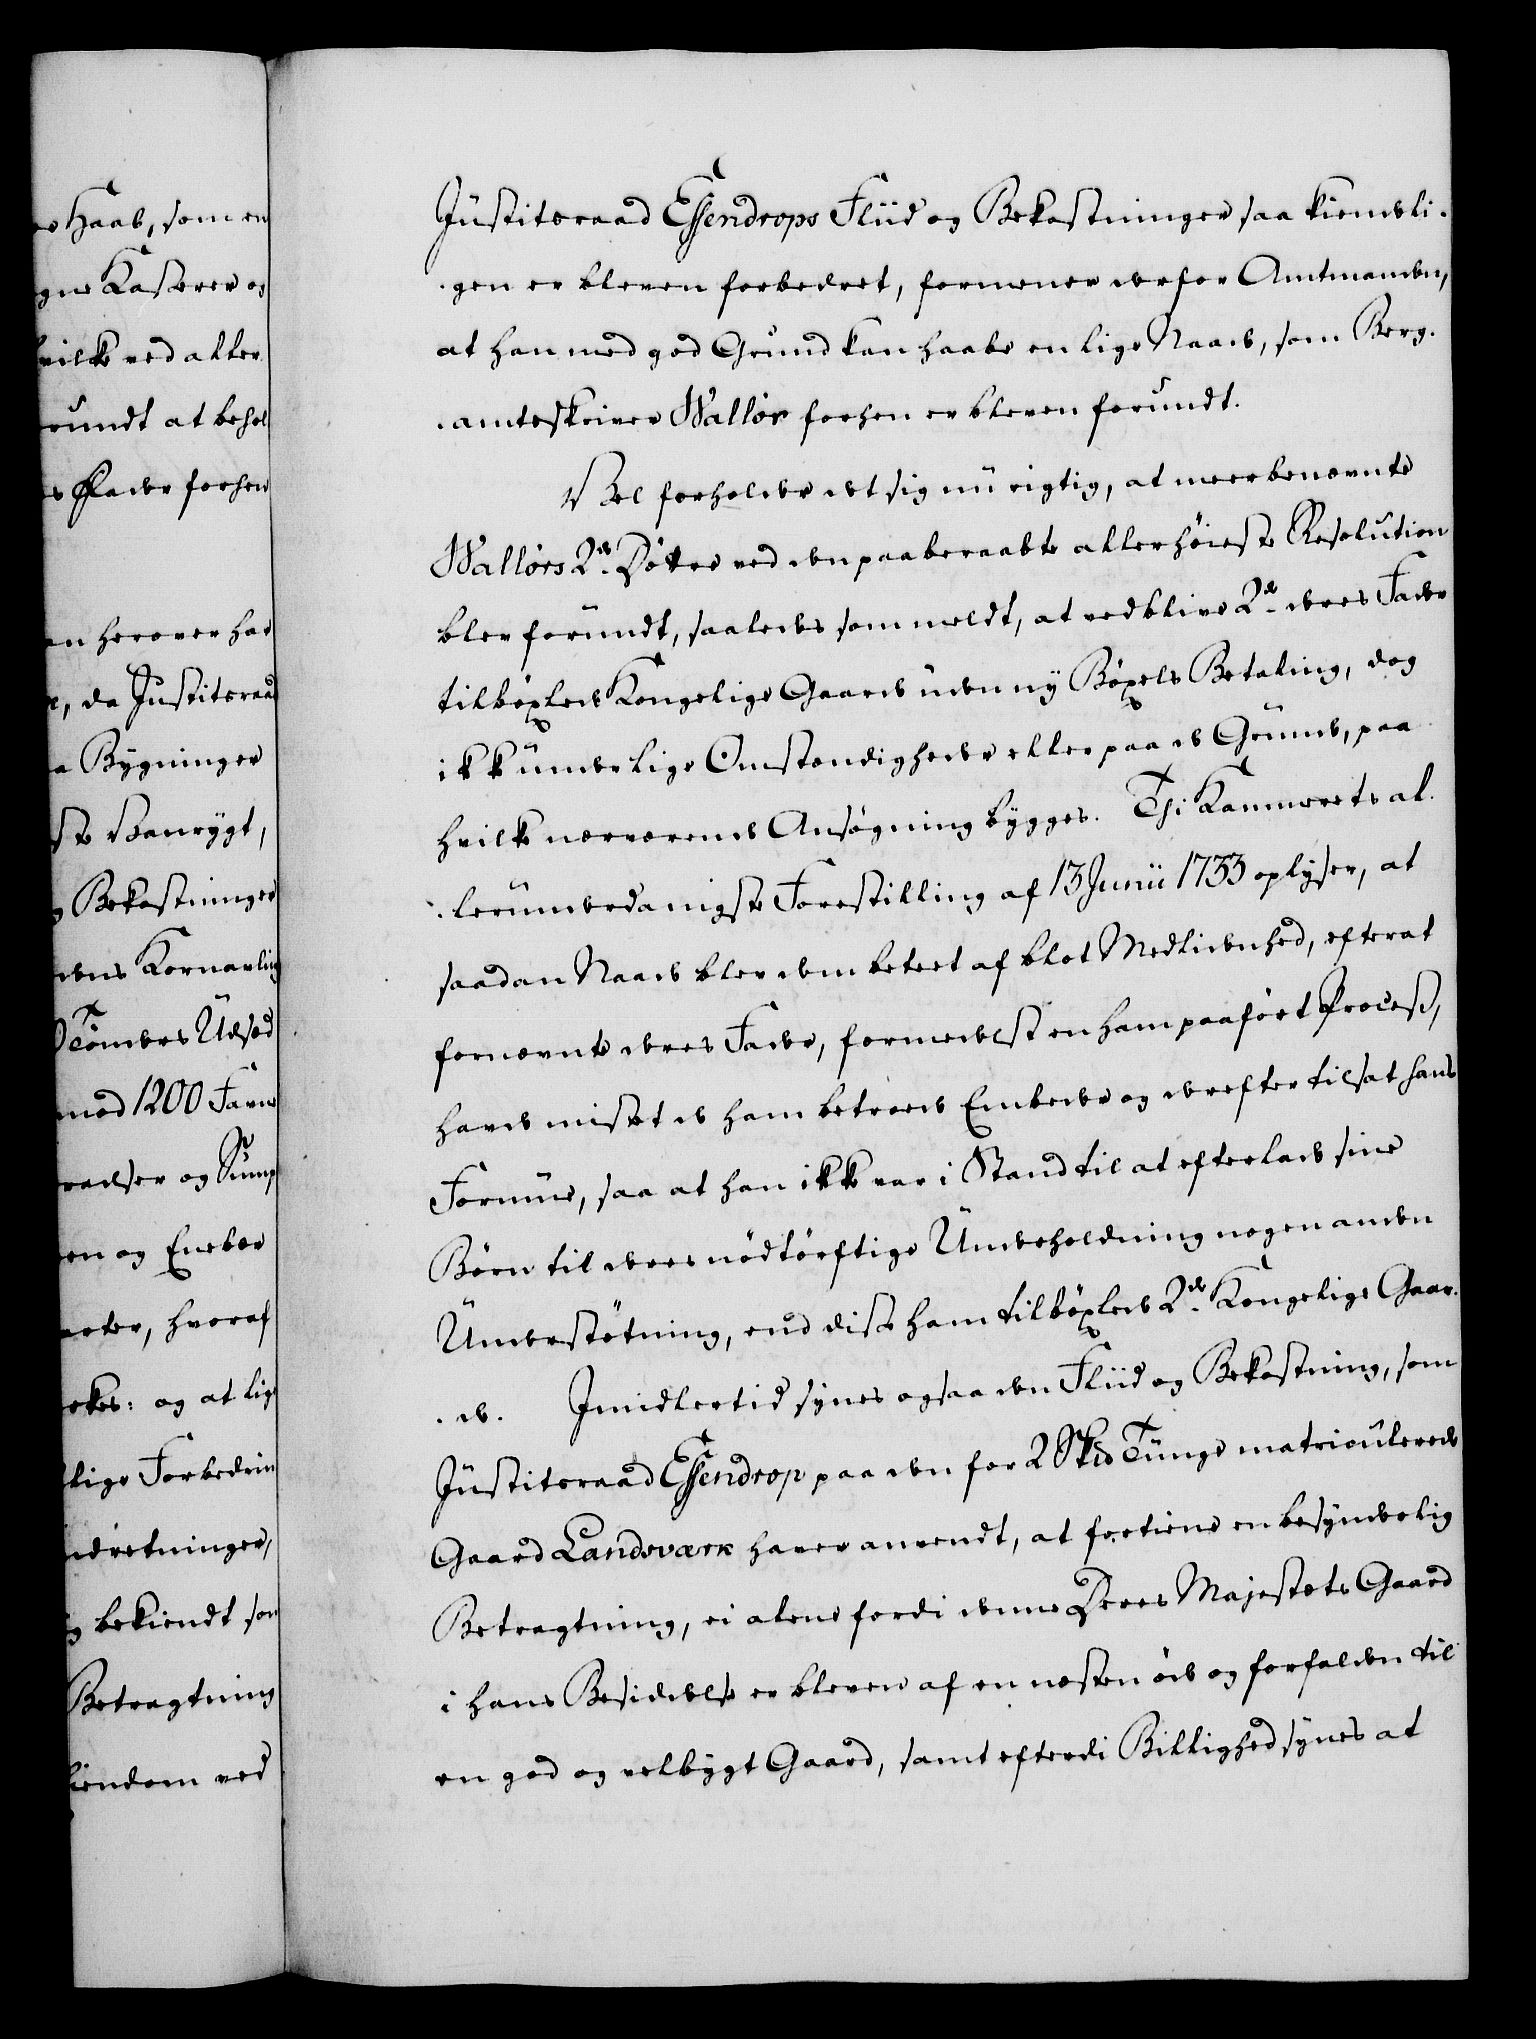 e Haab, som en
gne Kasserer og
hvilke ved aller
rundt at behol
s Fader forhen
an herover har
r, da Justitsraad
a Bygninger
ste Haandygt,
g Bekostninger
dens Kornavling
Tønders Udsæd
mod 1200 Favne
radser og Sump
en og Eneboer
arter, hvoraf
rkes: og at lige
lige Forbedrin
ndretninger,
g bekiendt som
Betragtning
iendom ved
Justitsraad Essendrops Fliid og Bekostninger saa kiendeli-
-gen er bleven forbedret, formener derfor Amtmanden,
at han med god Grund kan haabe en lige Naade, som Berg-
-amtsskriver Wallør forhen er bleven forundt.
Vel forholder det sig nu rigtig, at meerbenævnte
Walløes 2de Døttre ved den paaberaabte allerhøieste Resolution
blev forundt, saaledes som meldt, at vedblive 2de deres Fader
tilböxlede Kongelige Gaarde uden ny Böxels Betaling, dog
ikke under lige Omstændigheder eller paa de Grunde, paa
hvilke nærværende Ansøgning bygges. Thi Kammerets al-
-lerunderdanigste Forestilling af 13 Junii 1733 oplyser, at
saadan Naade blev dem beteet af blot Medlidenhed, efterat
fornævnte deres Fader, formedelst en ham paaført Process,
havde mistet de ham betroede Embeder og derefter tilsat hans
Formue, saa at han ikke var i Stand til at efterlade sine
Børn til deres nødtørftige Underholdning nogen anden
Understøtning, end disse ham tilböxlede 2de Kongelige Gaar-
-de. Imidlertid synes ogsaa den Fliid og Bekostning, som
Justitsraad Essendrop paa den for 2 Skd Tunge matriculerede
Gaard Landsværk haver anvendt, at fortiene en besynderlig
Betragtning, ei alene fordi denne Deres Majestæts Gaard
i hans Besiddelse er bleven af en næsten øde og forfalden til
en god og velbygt Gaard, samt efterdi Billighed synes at